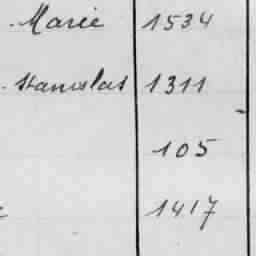 Marie 1534
Stanislas 1311
105
1417